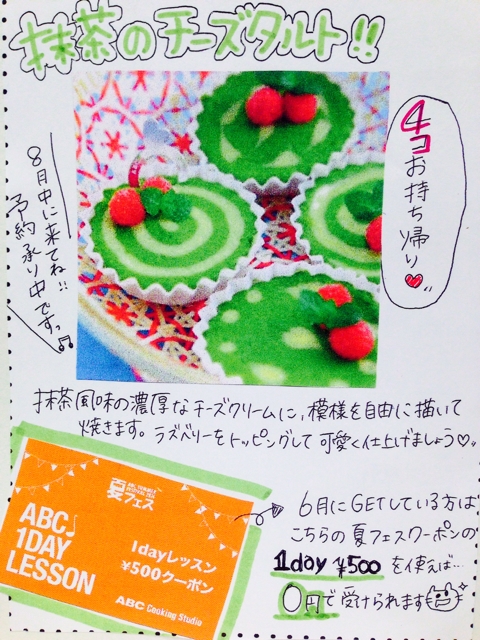 抹茶のチーズタルト!!
4コお持ち帰り
8月中に来てね!!
予約承り中ですっ
抹茶風味の濃厚なチーズクリームに、模様を自由に描いて
焼きます。ラズベリーをトッピングして可愛く仕上げましょう
夏フェス
ABC
1DAY
LESSON
1dayレッスン
¥500クーポン
ABC Cooking Studio
6月にGETしている方は
こちらの夏フェスクーポンの
1day ¥500を使えば…
0円で受けられます